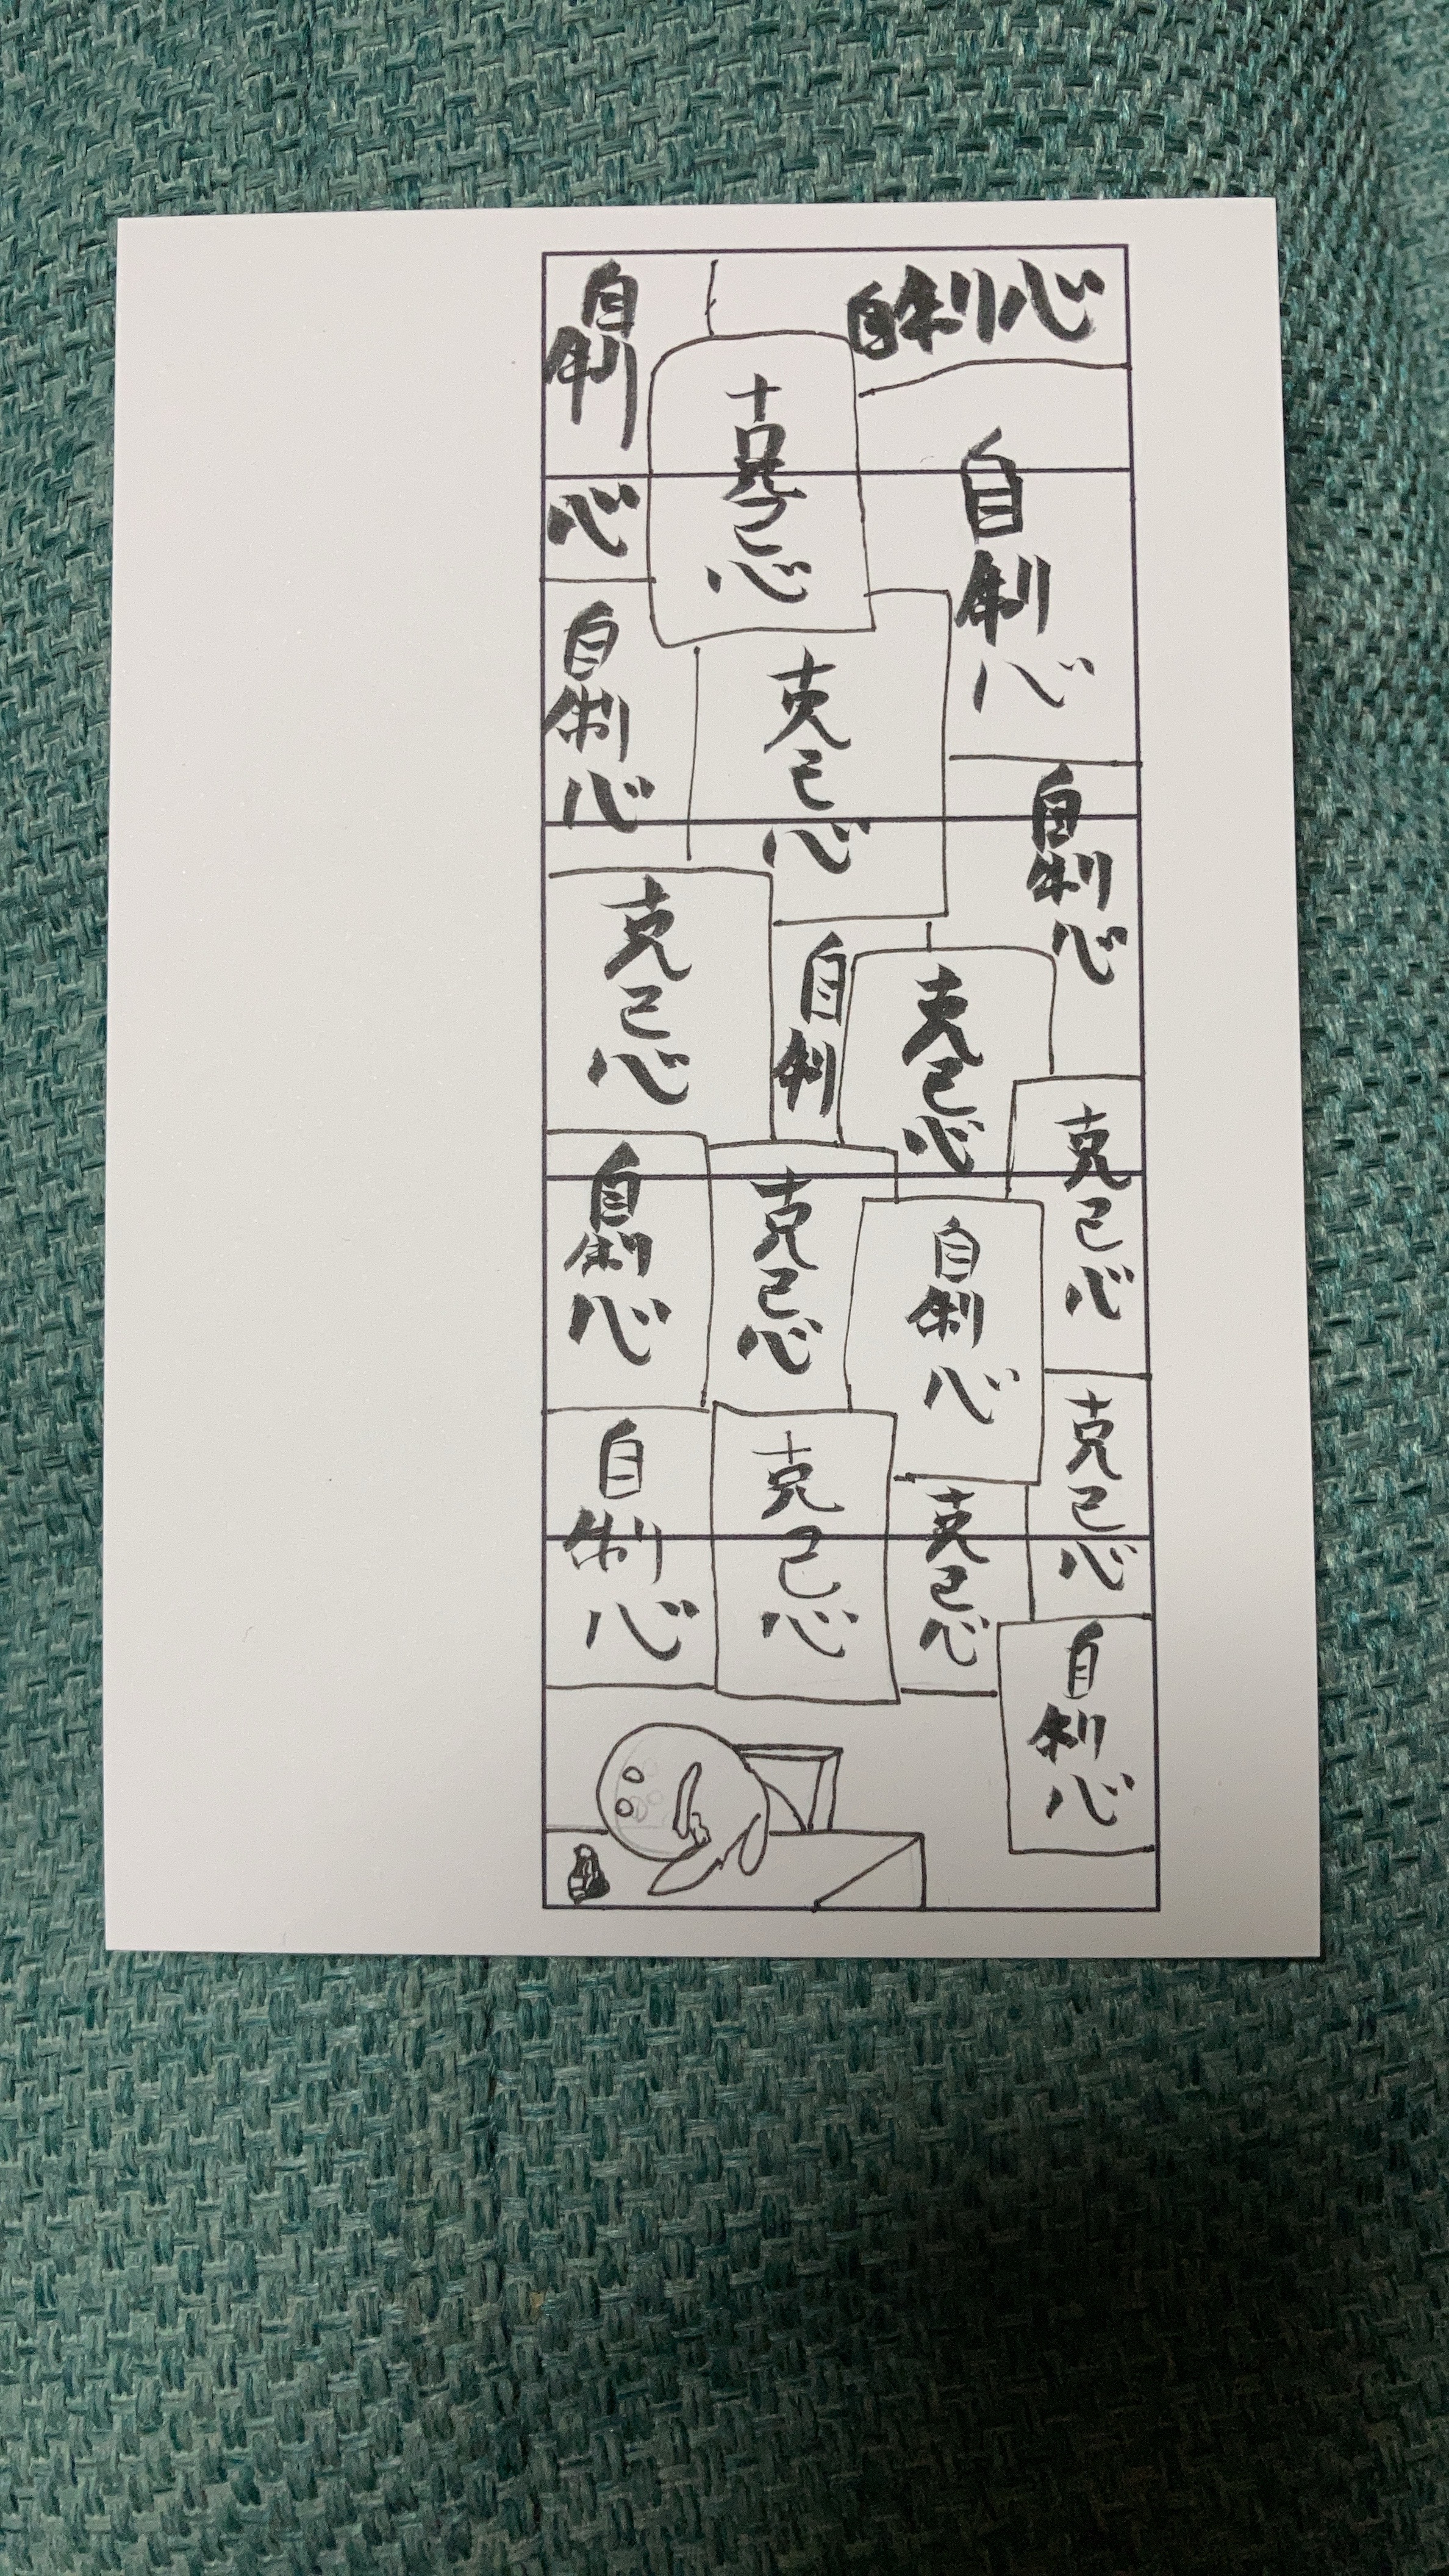 自制心
自制心
克己心
自制心
自制心
克己心
自制心
克己心
自制
克己心
克己心
自制心
克己心
自制心
克己心
自制心
克己心
克己心
自制心